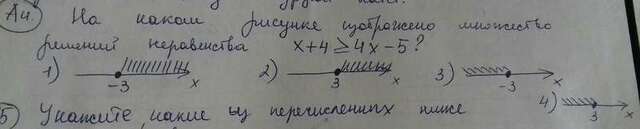 А4. На каком рисунке изображено множество
решений неравенства x+4 ≥ 4x-5?
1) -3 x 2) 3 x 3) -3 x
4) 3 x
5) Укажите, какие из перечисленных ниже